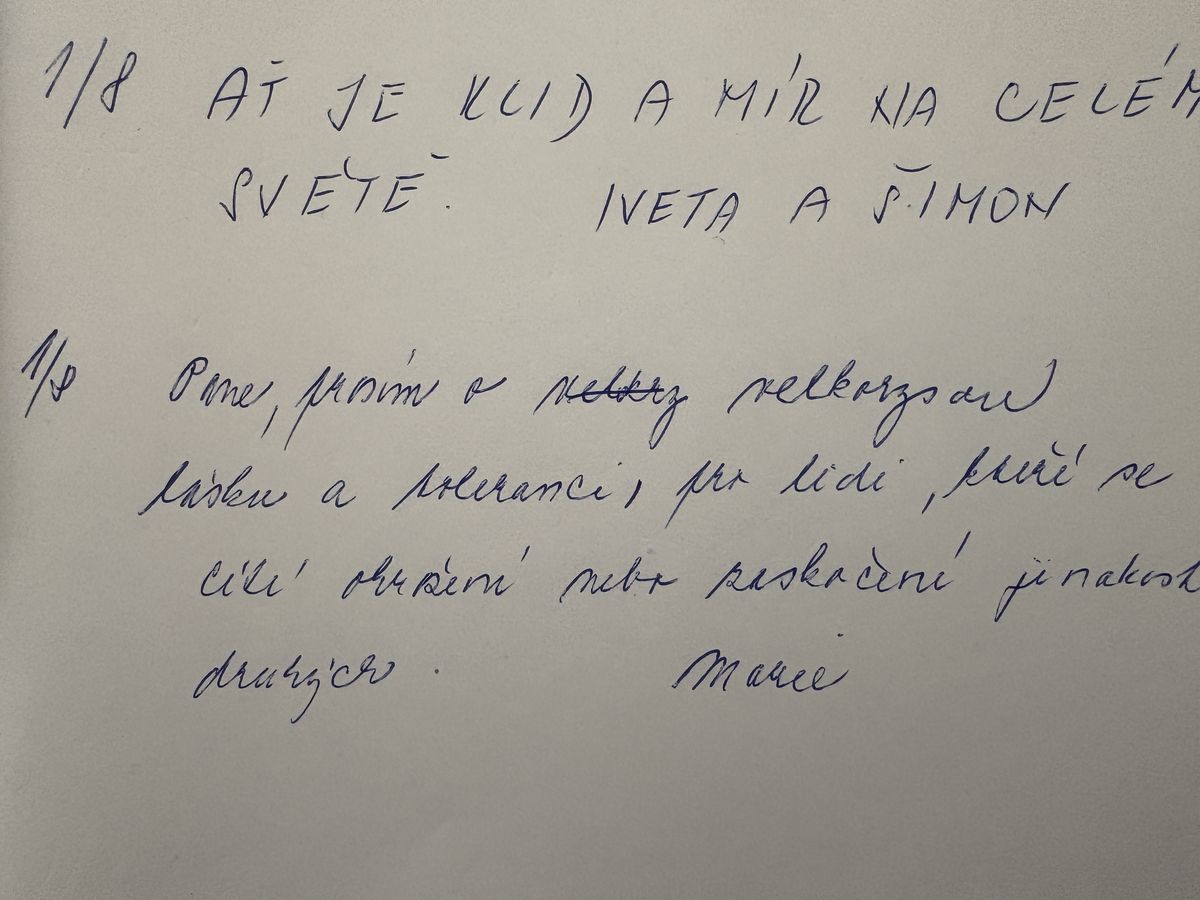 1/8 AŤ JE KLID A MÍR NA CELÉM
SVĚTĚ. IVETA A ŠIMON
1/8 Pane, prosím o velkorysou
lásku a toleranci, pro lidi, kteří se
cítí ohrožení nebo zaskočení jinakost
druhých. Marie